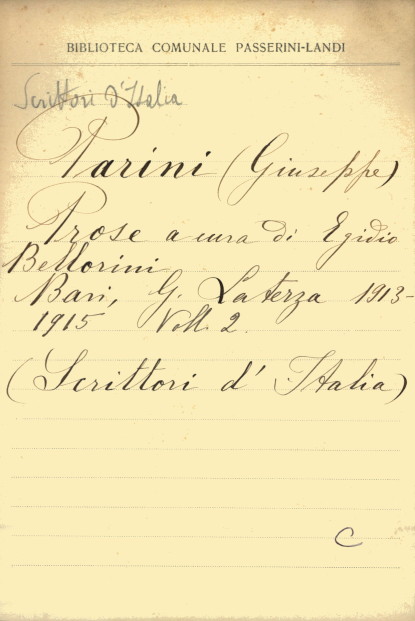 BIBLIOTECA COMUNALE PASSERINI-LANDI
Scrittori d'Italia
Parini (Giuseppe)
Prose a cura di Egidio
Bellorini
Bari, G. Laterza 1913-
1915 Voll. 2.
(Scrittori d' Italia)
C